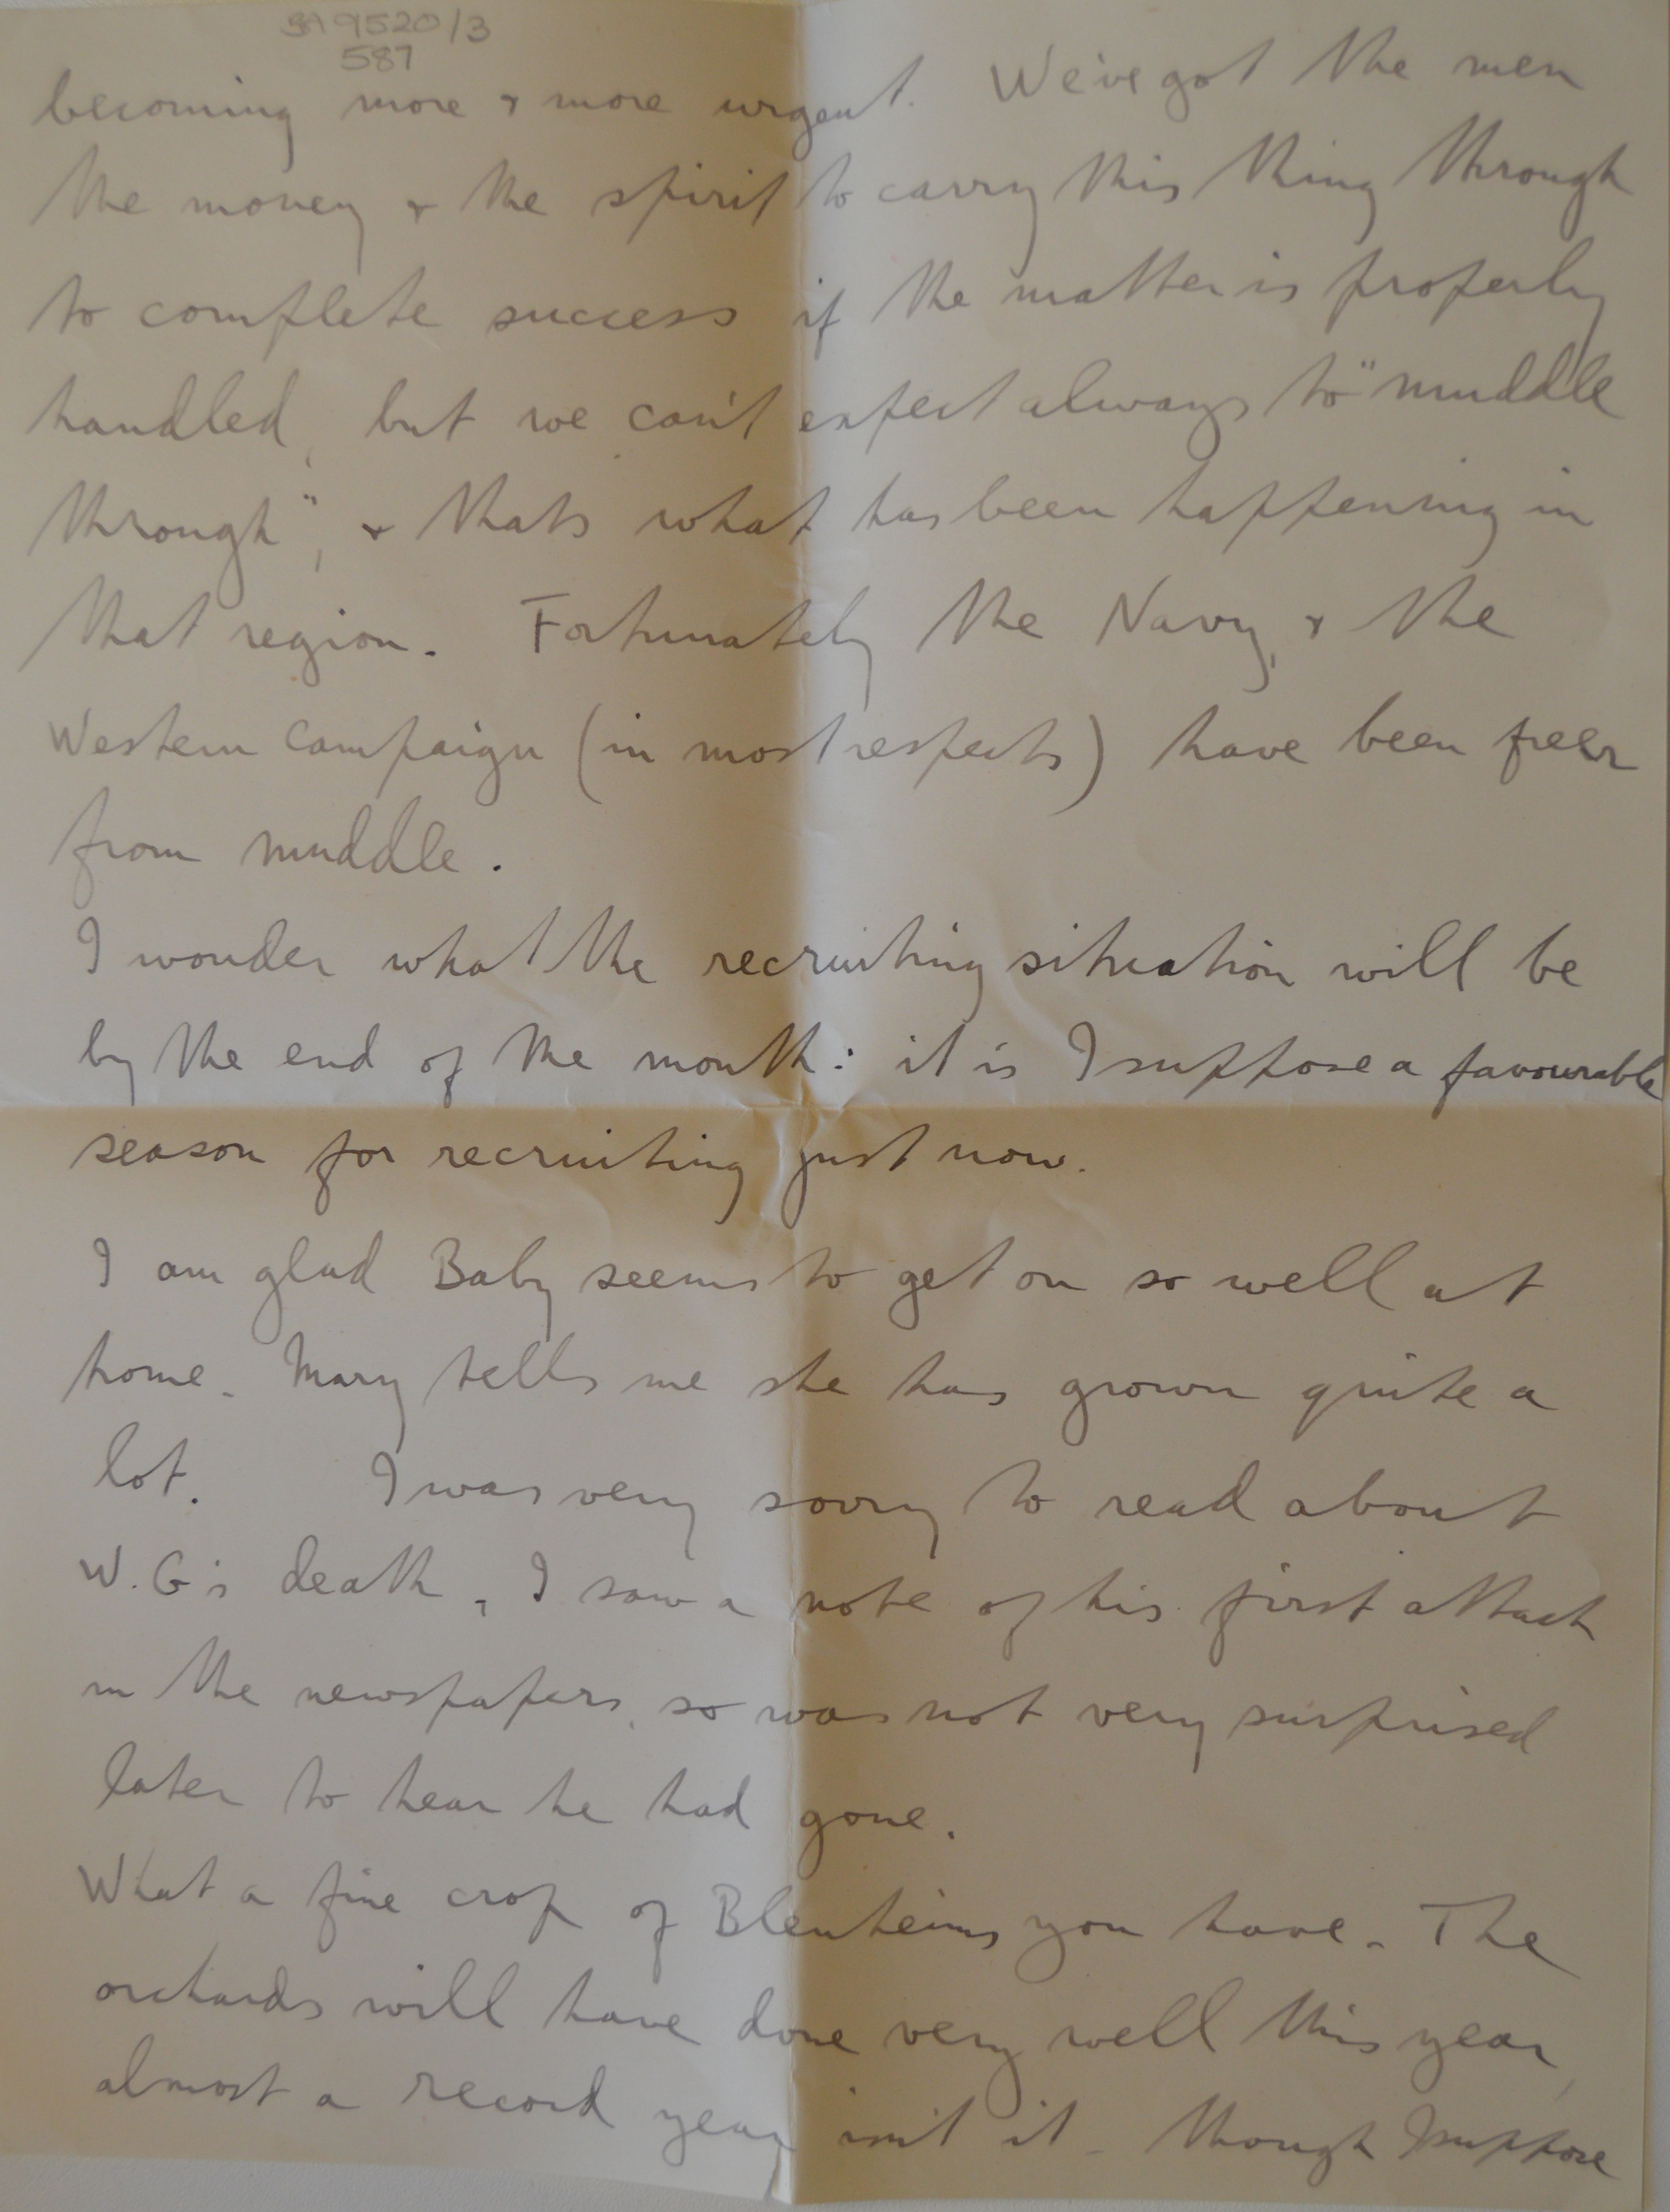 SA 9520/3
587
becoming more & more urgent. We've got the men
the money & the spirit to carry this thing through
to complete success if the matter is properly
handled, but we can't expect always to "muddle
through", & thats what has been happening in
that region. Fortunately the Navy, & the
Western Campaign (in most respects) have been freer
from muddle.
I wonder what the recruiting situation will be
by the end of the month: it is I suppose a favourable
season for recruiting just now.
I am glad Baby seems to get on so well at
home. Mary tells me she has grown quite a
lot. I was very sorry to read about
W.G's death, I saw a note of his first attack
in the newspapers, so was not very surprised
later to hear he had gone.
What a fine crop of Blenheims you have. The
orchards will have done very well this year,
almost a record year isn't it - though I suppose